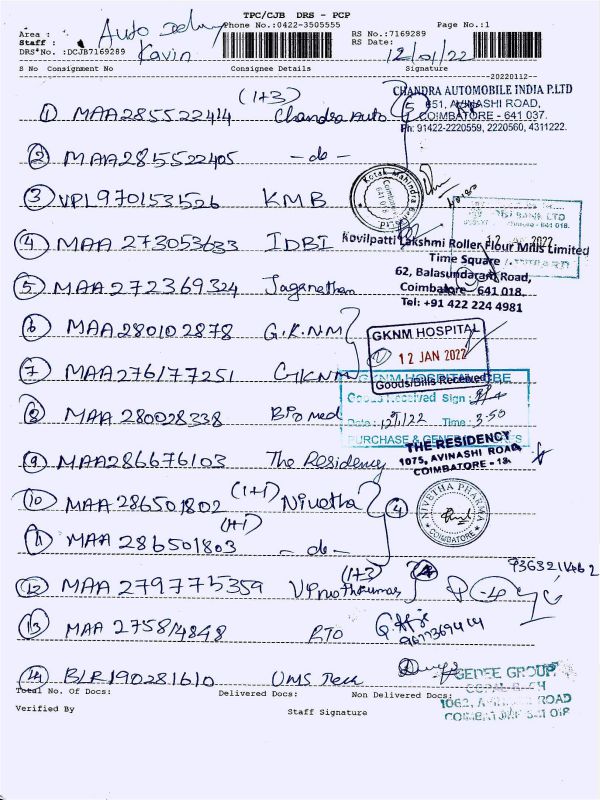 TPC/CJB DRS - PCP
Area : Auto Phone No.:0422-3505555 Page No.:1
Staff : Kavin RS No.:7169289
DRS*No. :DCJB7169289 RS Date: 12/01/22
S No Consignment No Consignee Details Signature
20220112--
CHANDRA AUTOMOBILE INDIA P.LTD
651, AVINASHI ROAD,
COIMBATORE - 641 037.
Ph: 91422-2220559, 2220560, 4311222.
(1+3)
1 MAA285522414 Chandra Auto 5
2 MAA285522405 - do -
3 VPL970153526 KMB
Kotak Mahindra
Coimbatore
4 MAA 273053633 IDBI
BANK LTD
12 2022
Kovilpatti Lakshmi Roller Flour Mills Limited
Time Square
62, Balasundaram Road,
Coimbatore - 641 018.
Tel: +91 422 224 4981
5 MAA 272369324 Jaganathan
6 MAA280102878 G.K.N.M
GKNM HOSPITAL
12 JAN 2022
Goods/Bills Received
7 MAA276177251 GKNM
GKNM HOSPITAL CBE
Goods Received Sign :
Date : 12/1/22 Time : 3.50
PURCHASE &
8 MAA 280028338 BPO med
THE RESIDENCY
1075, AVINASHI ROAD,
COIMBATORE - 18.
9 MAA286676103 The Residency
10 MAA 286501802 (1+1) Nivetha 4
NIVETHA PHARMA
COIMBATORE
11 MAA 286501803 (1+1) - do -
12 MAA 279775359 (1+3) 4 9363211462
13 MAA 275814848 RTO
14 BLR190281610 UMS Tech
GEDEE GROUP
1062, ROAD
COIMBATORE 641 018
Total No. Of Docs: Delivered Docs: Non Delivered Docs:
Verified By Staff Signature